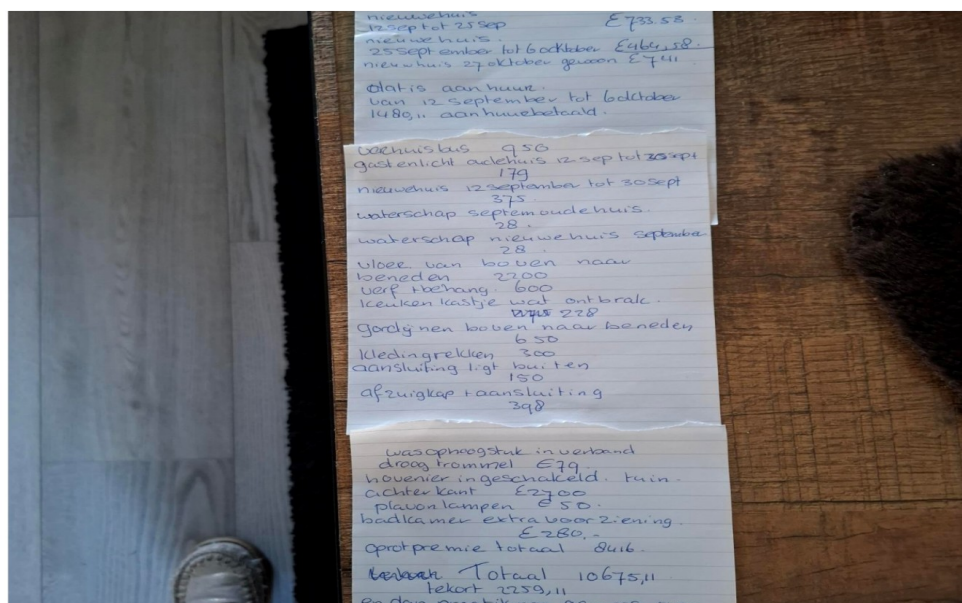 nieuwehuis
12 sep tot 25 sep £733.53
nieuwehuis.
25 september tot 6 ocktober £464,58.
nieuwhuis 27 oktober gewoon £741
dat is aan huur.
van 12 september tot 6 october
1480,11 aan huur betaald.
verhuisbus 950
gastenlicht oudehuis 12 sep tot 30 sept
179
nieuwehuis 12 september tot 30 sept
375.
waterschap septem oudehuis.
28.
waterschap nieuwehuis september
28.
vloer van boven naar
beneden 2200
verf + behang. 600
keuken kastje wat ontbrak.
228
gordijnen boven naar beneden
650
kledingrekken 300
aansluiting ligt buiten
150
afzuigkap + aansluiting
398
was ophoogstuk in verband
droog trommel £79
hovenier ingeschakeld. tuin.
achterkant £2700
plavon lampen £50.
badkamer extra voorziening.
£280,-
oprotpremie totaal 8416.
Totaal 10675,11
tekort 2259,11
en dan